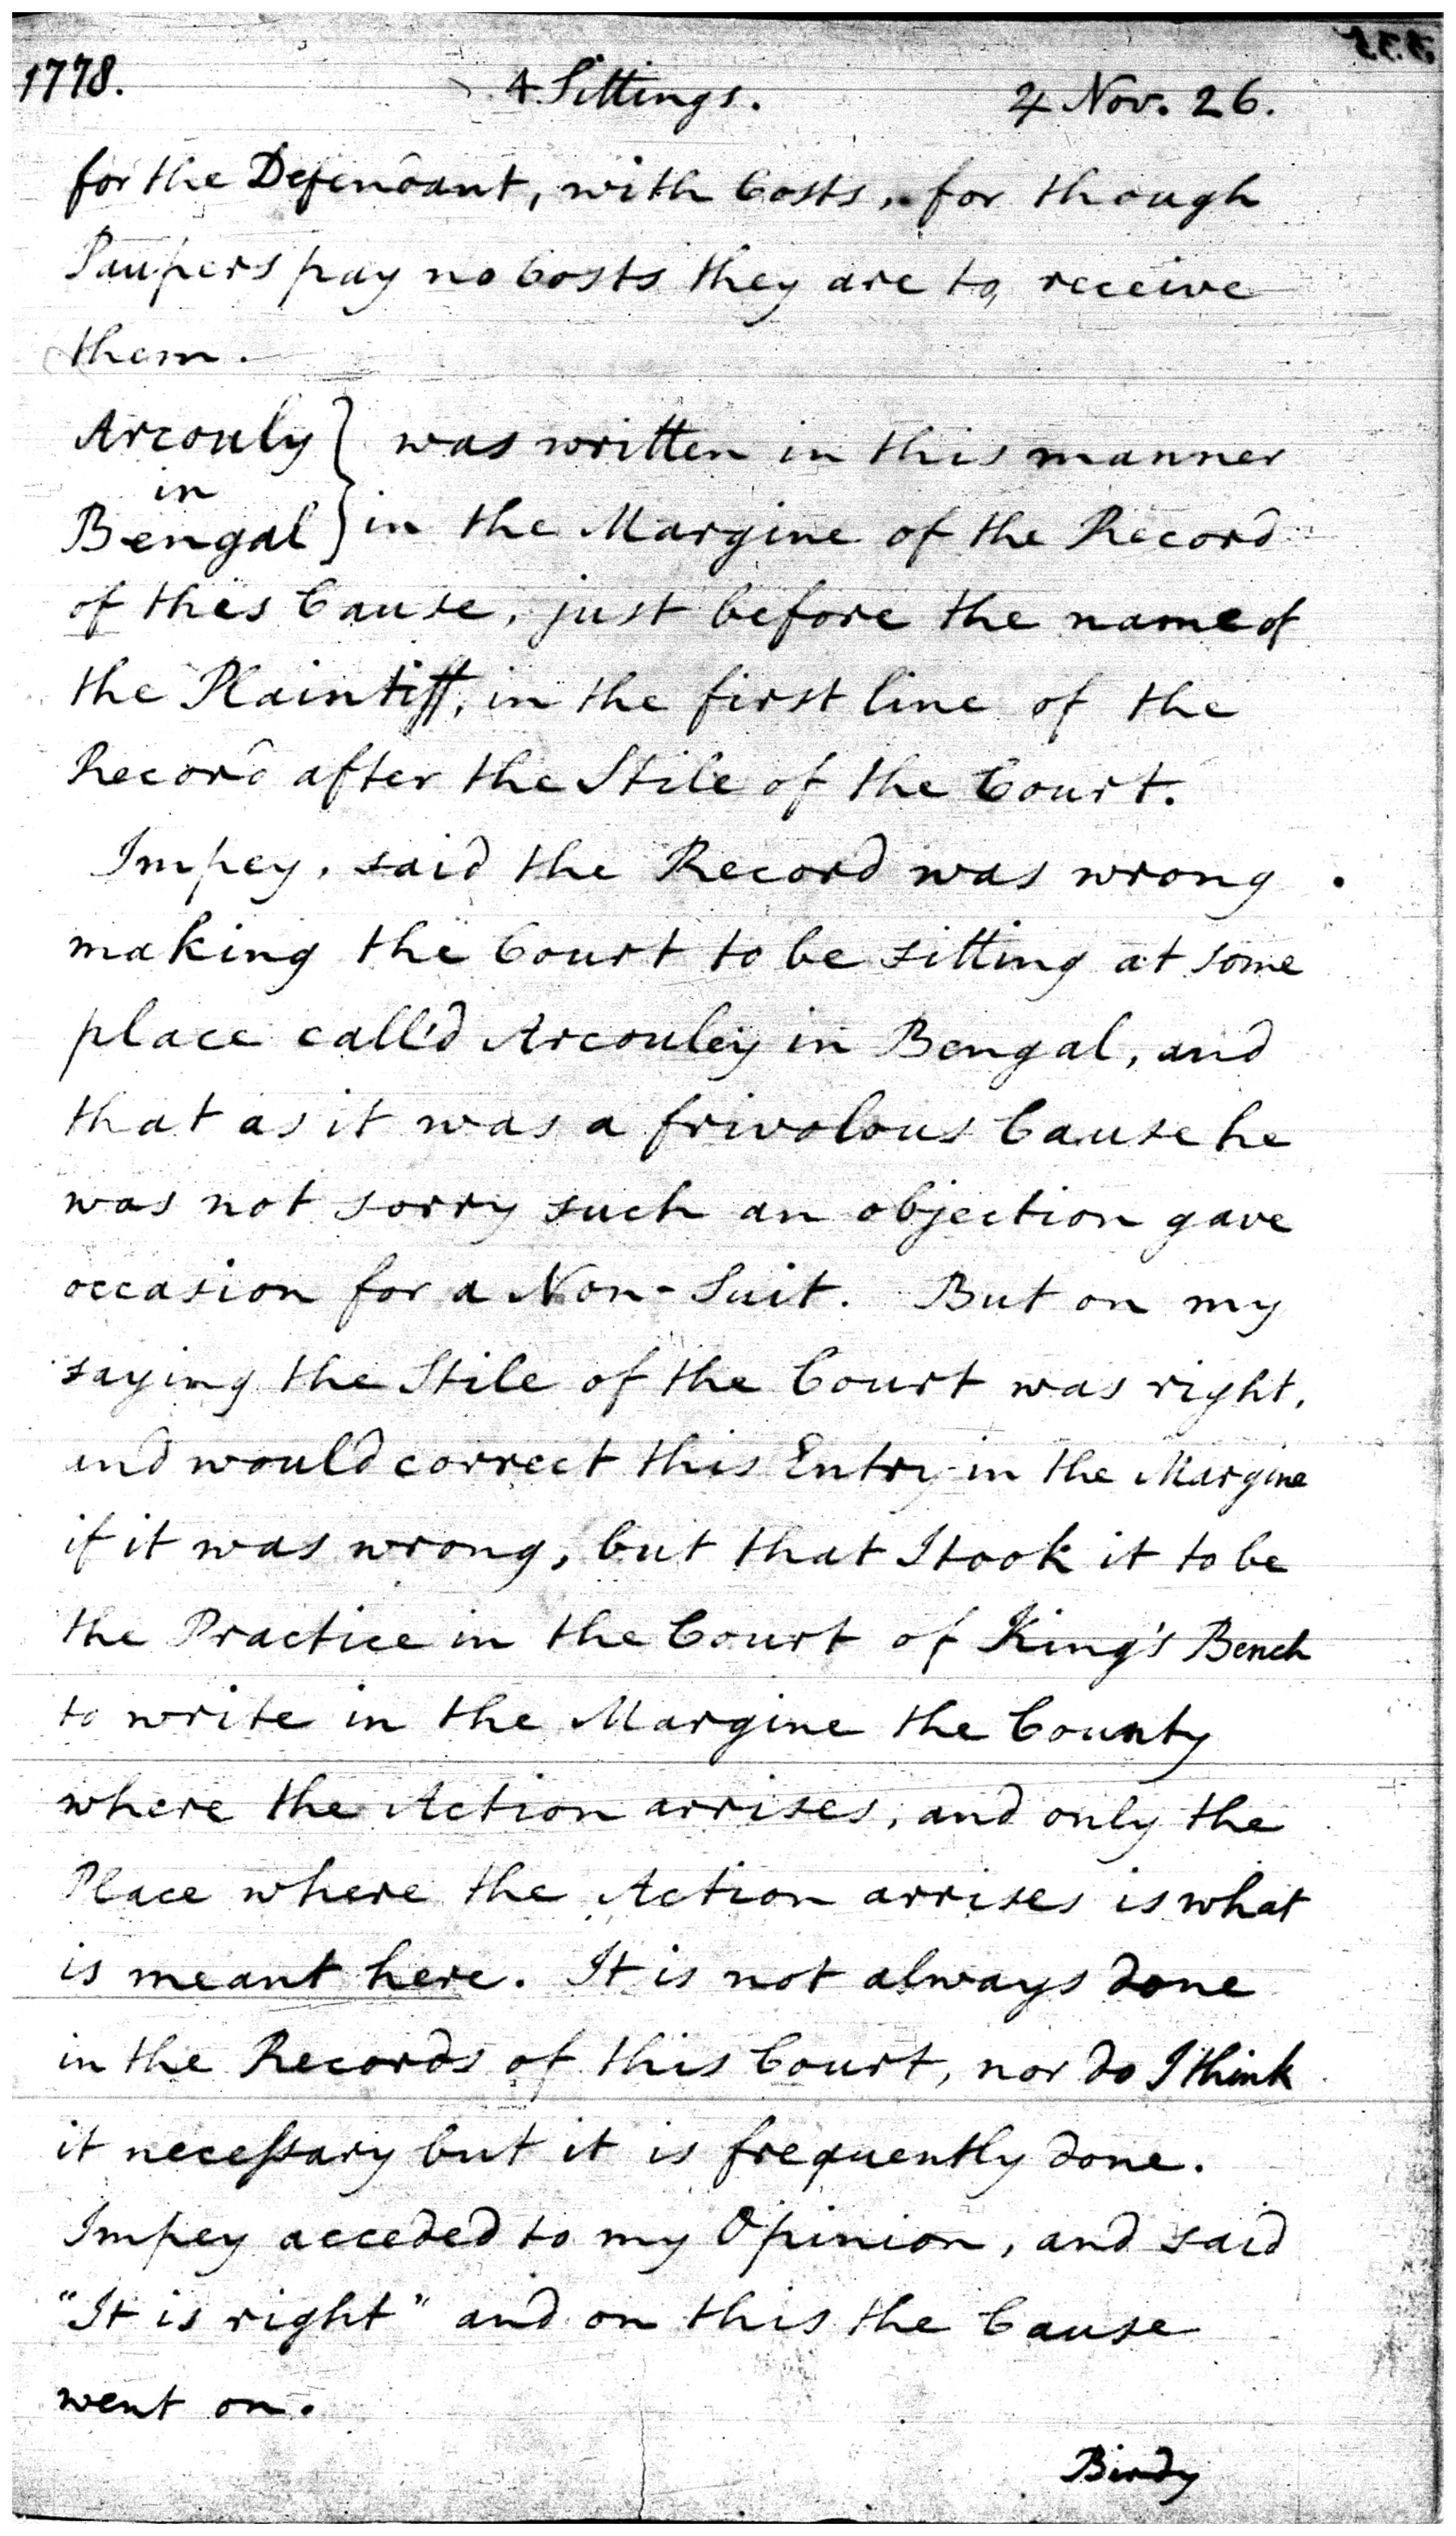 1778. 4 Sittings. ♃ Nov. 26.
for the Defendant, with Costs, for though
Paupers pay no Costs they are to receive
them.
Arcouly } was written in this manner
in
Bengal } in the Margine of the Record
of this Cause, just before the name of
the Plaintiff, in the first line of the
Record after the Stile of the Court.
Impey, said the Record was wrong
making the Court to be sitting at some
place call'd Arcouley in Bengal, and
that as it was a frivolous Cause he
was not sorry such an objection gave
occasion for a Non-Suit. But on my
saying the Stile of the Court was right,
and would correct this Entry in the Margine
if it was wrong, but that I took it to be
the Practice in the Court of King's Bench
to write in the Margine the County
where the Action arrises, and only the
Place where the Action arrises is what
is meant here. It is not always done
in the Records of this Court, nor do I think
it necessary but it is frequently done.
Impey acceded to my Opinion, and said
"It is right" and on this the Cause
went on.
Birdy